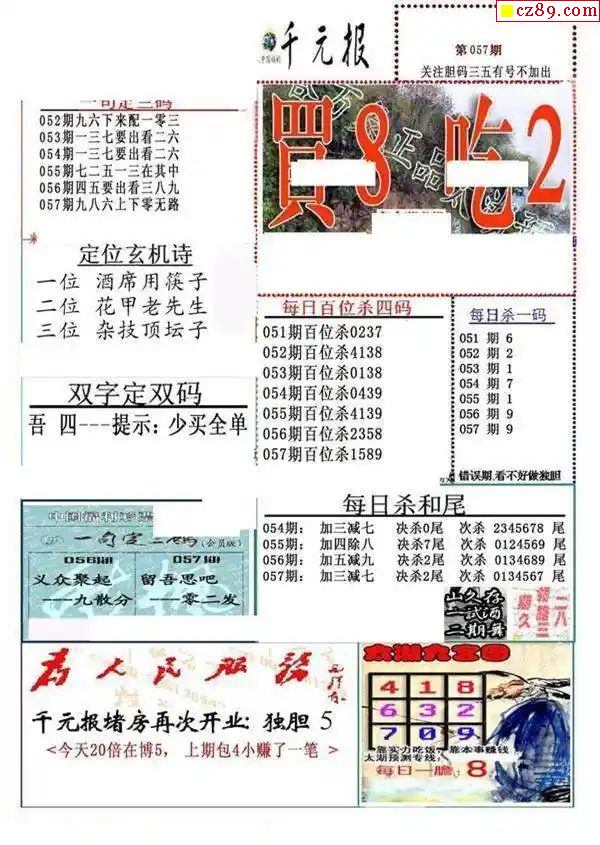 cz89.com
千元报
第057期
关注胆码三五有号不加出
一句定三码
052期九六下来配一零三
053期一三七要出看二六
054期一三七要出看二六
055期七二五一三在其中
056期四五要出看三八九
057期九八六上下零无路
買8 吃2
定位玄机诗
一位 酒席用筷子
二位 花甲老先生
三位 杂技顶坛子
双字定双码
吾 四---提示: 少买全单
每日百位杀四码
051期百位杀0237
052期百位杀4138
053期百位杀0138
054期百位杀0439
055期百位杀4139
056期百位杀2358
057期百位杀1589
每日杀一码
051 期 6
052 期 2
053 期 1
054 期 7
055 期 1
056 期 9
057 期 9
错误期,看不好做独胆
每日杀和尾
054期: 加三减七 决杀0尾 次杀 2345678 尾
055期: 加四除八 决杀7尾 次杀 0124569 尾
056期: 加五减九 决杀2尾 次杀 0134569 尾
057期: 加三减七 决杀2尾 次杀 0134567 尾
中国福利彩票
一句定二码(会员版)
056期 057期
义众聚起 留吾思吧
---九散分 ---零二发
为人民服务
千元报堵房再次开业: 独胆 5
<今天20倍在博5, 上期包4小赚了一笔 >
太湖九宫图
4 1 8
6 3 2
7 0 9
靠实力吃饭,靠本事赚钱
太湖预测专线:
每日一胆: 8